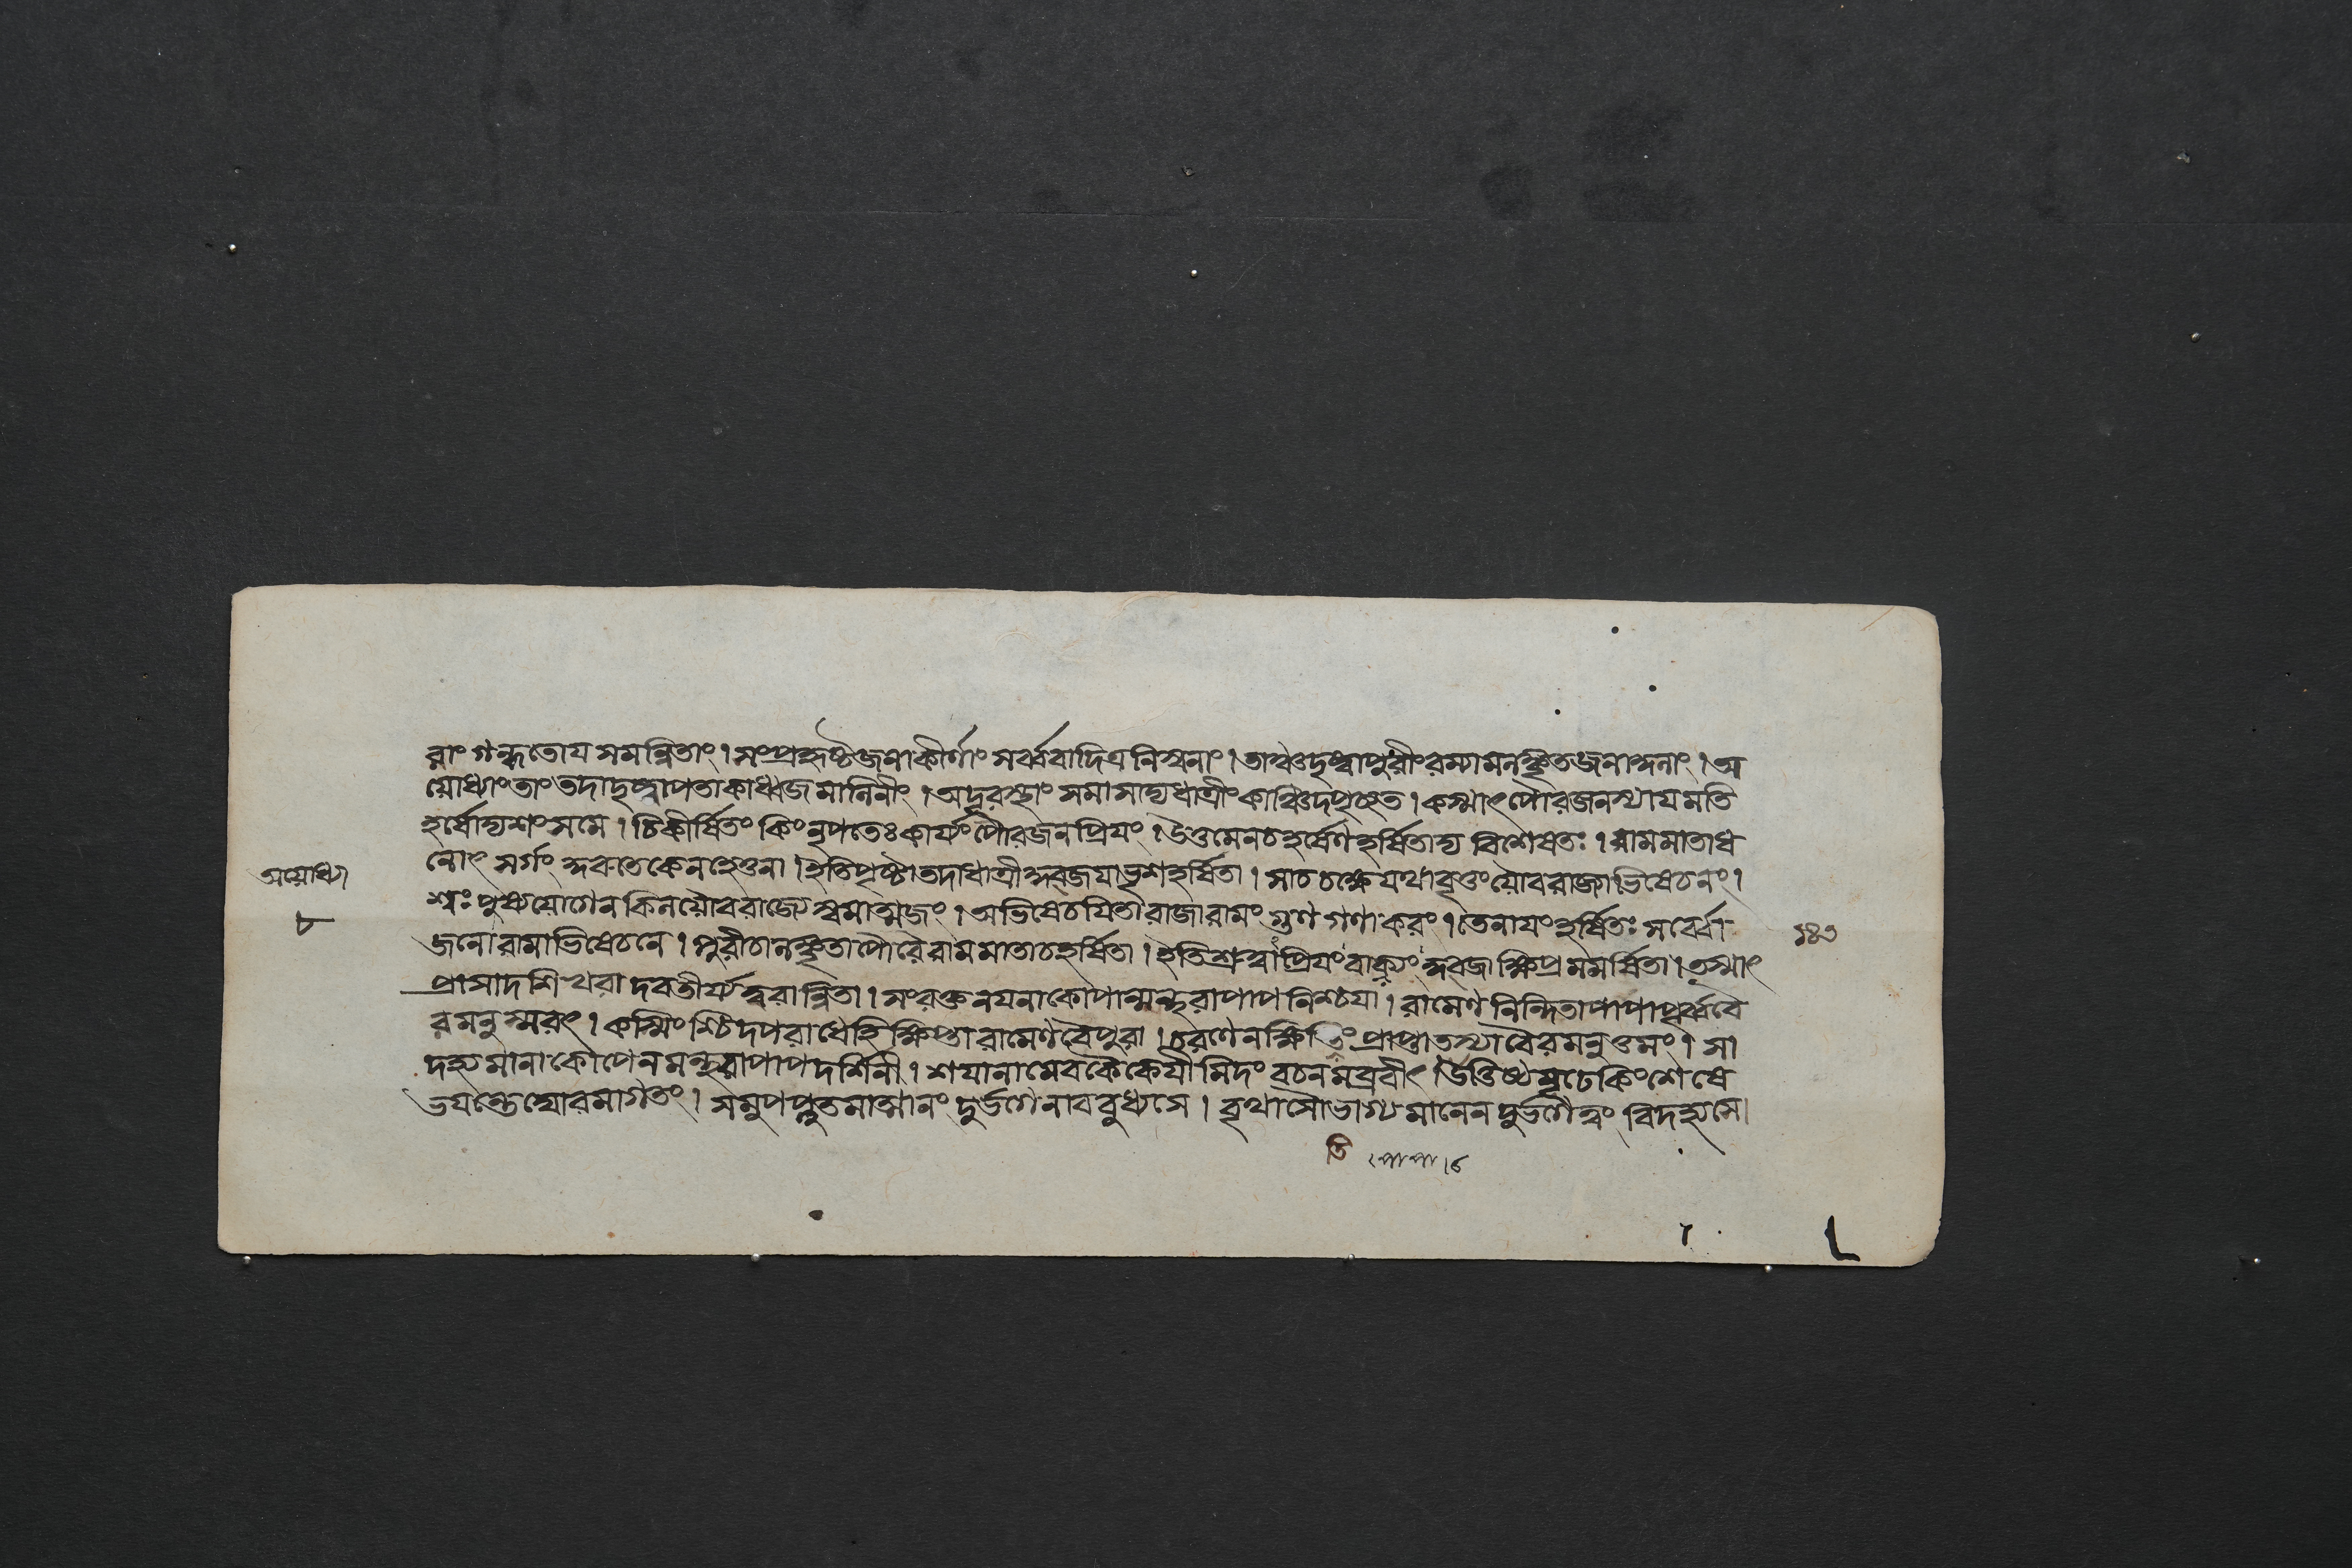 রাং গন্ধতোয সমন্বিতাং । সংপ্রহৃষ্টৈজনাকীর্ণাং সর্ব্ববাদিত্রনিস্বনাং । তাম্বৈ দৃষ্ট্বা পুরীং রম্যামলঙ্কৃতজনাঙ্গনাং । অ
যোধ্যাং তাং তদা দৃষ্ট্বা পতাকাধ্বজমালিনীং । অদূরস্থাং সমাসাদ্য ধাত্রীং কাঞ্চিদপৃচ্ছত । কস্মাৎ পৌরজনস্যাযমতি
হর্ষোভৃশং সমে । চিকীর্ষিতং কিং নৃপতেঃ কার্য্যং পৌরজনপ্রিযং । উত্তমেন চ হর্ষেণ হর্ষিতাদ্য বিশেষতঃ । রামমাতা ধ
নোৎসর্গং কুরুতে কেন হেতুনা । ইতি পৃষ্টা তদা ধাত্রী কুব্জযা ভৃশহর্ষিতা । সাচচক্ষে যথাবৃত্তং যৌবরাজ্যাভিষেচনং ।
শ্বঃ পুষ্যযোগেন কিল যৌবরাজ্যে স্বমাত্মজং । অভিষেচযিতা রাজা রামং গুণগণাকরং । তেনাযং হর্ষিতঃ সর্ব্বো
জনো রামাভিষেচনে । পুরী চালঙ্কৃতা পৌরৈ রামমাতা চ হর্ষিতা । ইতি শ্রুত্বাপ্রিযং বাক্যং কুব্জা ক্ষিপ্রমমর্ষিতা । তস্মাৎ
প্রাসাদশিখরাদবতীর্য্য ত্বরান্বিতা । সংরক্তনযনা কোপান্মন্থরা পাপনিশ্চযা । রামেণ নিন্দিতা পাপা পূর্ব্ববৈ
রমনুস্মরৎ । কস্মিংশ্চিদপরাধে হি ক্ষিপ্তা রামেণ বৈ পুরা । চরণেন ক্ষিতিং প্রাপ্তা তস্যা বৈরমনুত্তমং । সা
দহ্যমানা কোপেন মন্থরা পাপদর্শিনী । শযানামেব কৈকেযীমিদং বচনমব্রবীৎ । উত্তিষ্ঠ মূঢে কিং শেষে
ভযন্তে ঘোরমাগতং । সমুপপ্লুতমাত্মানং দুর্ভগে নাববুধ্যসে । বৃথা সৌভাগ্যমানেন দুর্ভগে ত্বং বিদহ্যসে।
তি
অযোধ্যা
৮